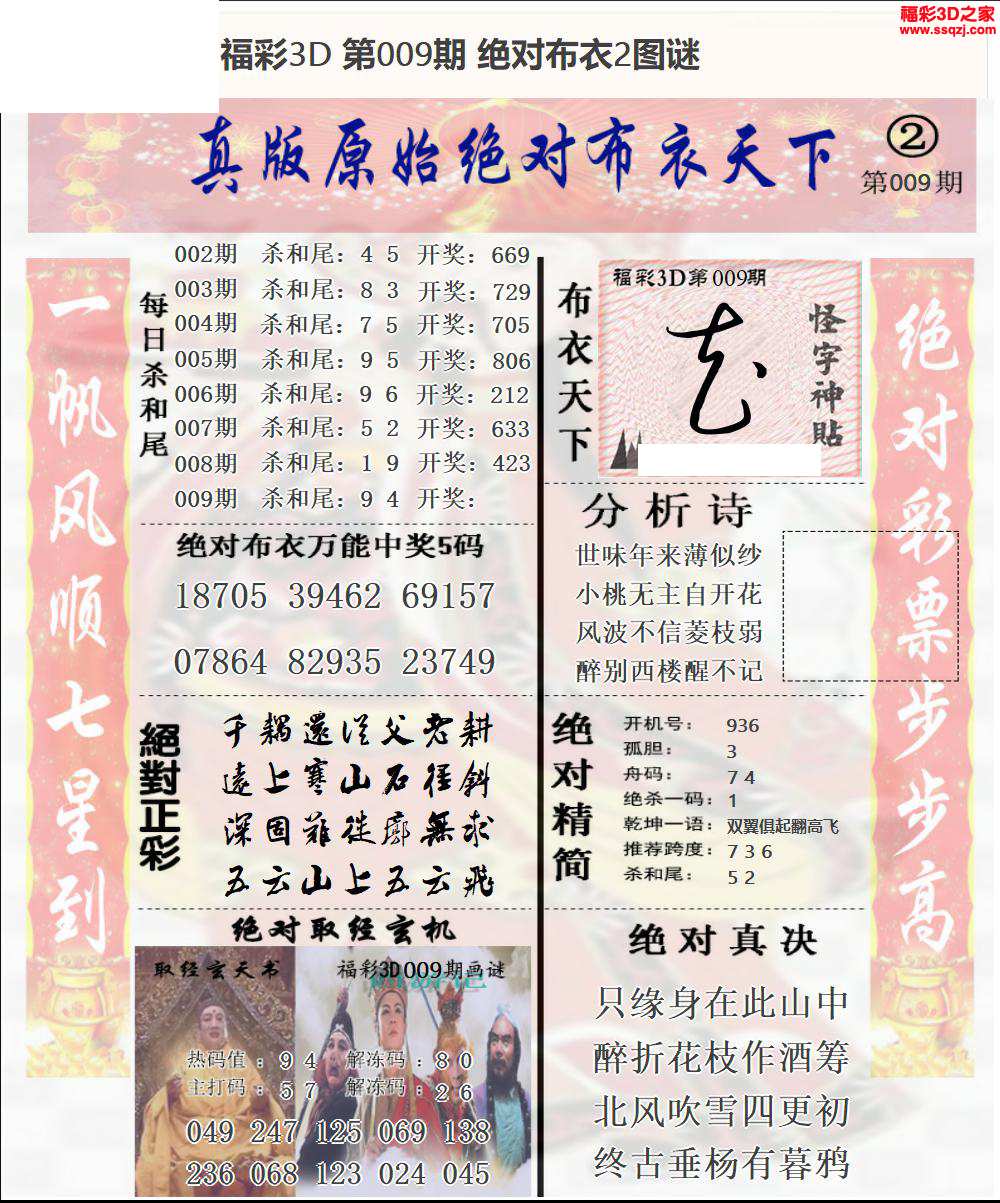 福彩3D之家
www.ssqzj.com
福彩3D 第009期 绝对布衣2图谜
真版原始绝对布衣天下
②
第009期
一帆风顺七星到
每日杀和尾
002期 杀和尾：4 5 开奖：669
003期 杀和尾：8 3 开奖：729
004期 杀和尾：7 5 开奖：705
005期 杀和尾：9 5 开奖：806
006期 杀和尾：9 6 开奖：212
007期 杀和尾：5 2 开奖：633
008期 杀和尾：1 9 开奖：423
009期 杀和尾：9 4 开奖：
绝对布衣万能中奖5码
18705 39462 69157
07864 82935 23749
絕對正彩
千耦還從父老耕
遠上寒山石径斜
深固難徙廓無求
五云山上五云飛
绝对取经玄机
取经玄天书
福彩3D009期画谜
热码值：9 4 解冻码：8 0
主打码：5 7 解冻码：2 6
049 247 125 069 138
236 068 123 024 045
布衣天下
福彩3D第009期
怪字神貼
分析诗
世味年来薄似纱
小桃无主自开花
风波不信菱枝弱
醉别西楼醒不记
绝对精简
开机号：936
孤胆：3
舟码：7 4
绝杀一码：1
乾坤一语：双翼俱起翻高飞
推荐跨度：7 3 6
杀和尾：5 2
绝对真决
只缘身在此山中
醉折花枝作酒筹
北风吹雪四更初
终古垂杨有暮鸦
绝对彩票步步高